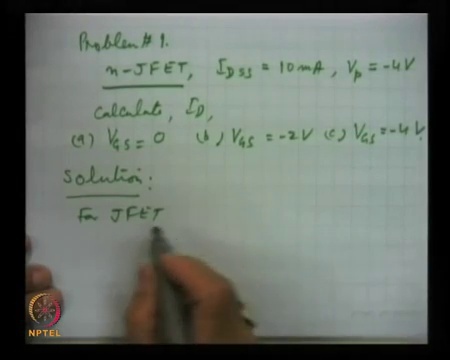 Problem # 1.
n-JFET, IDSS = 10mA, Vp = -4V
Calculate, ID,
(a) VGS = 0 (b) VGS = -2V (c) VGS = -4V.
Solution:
For JFET
NPTEL